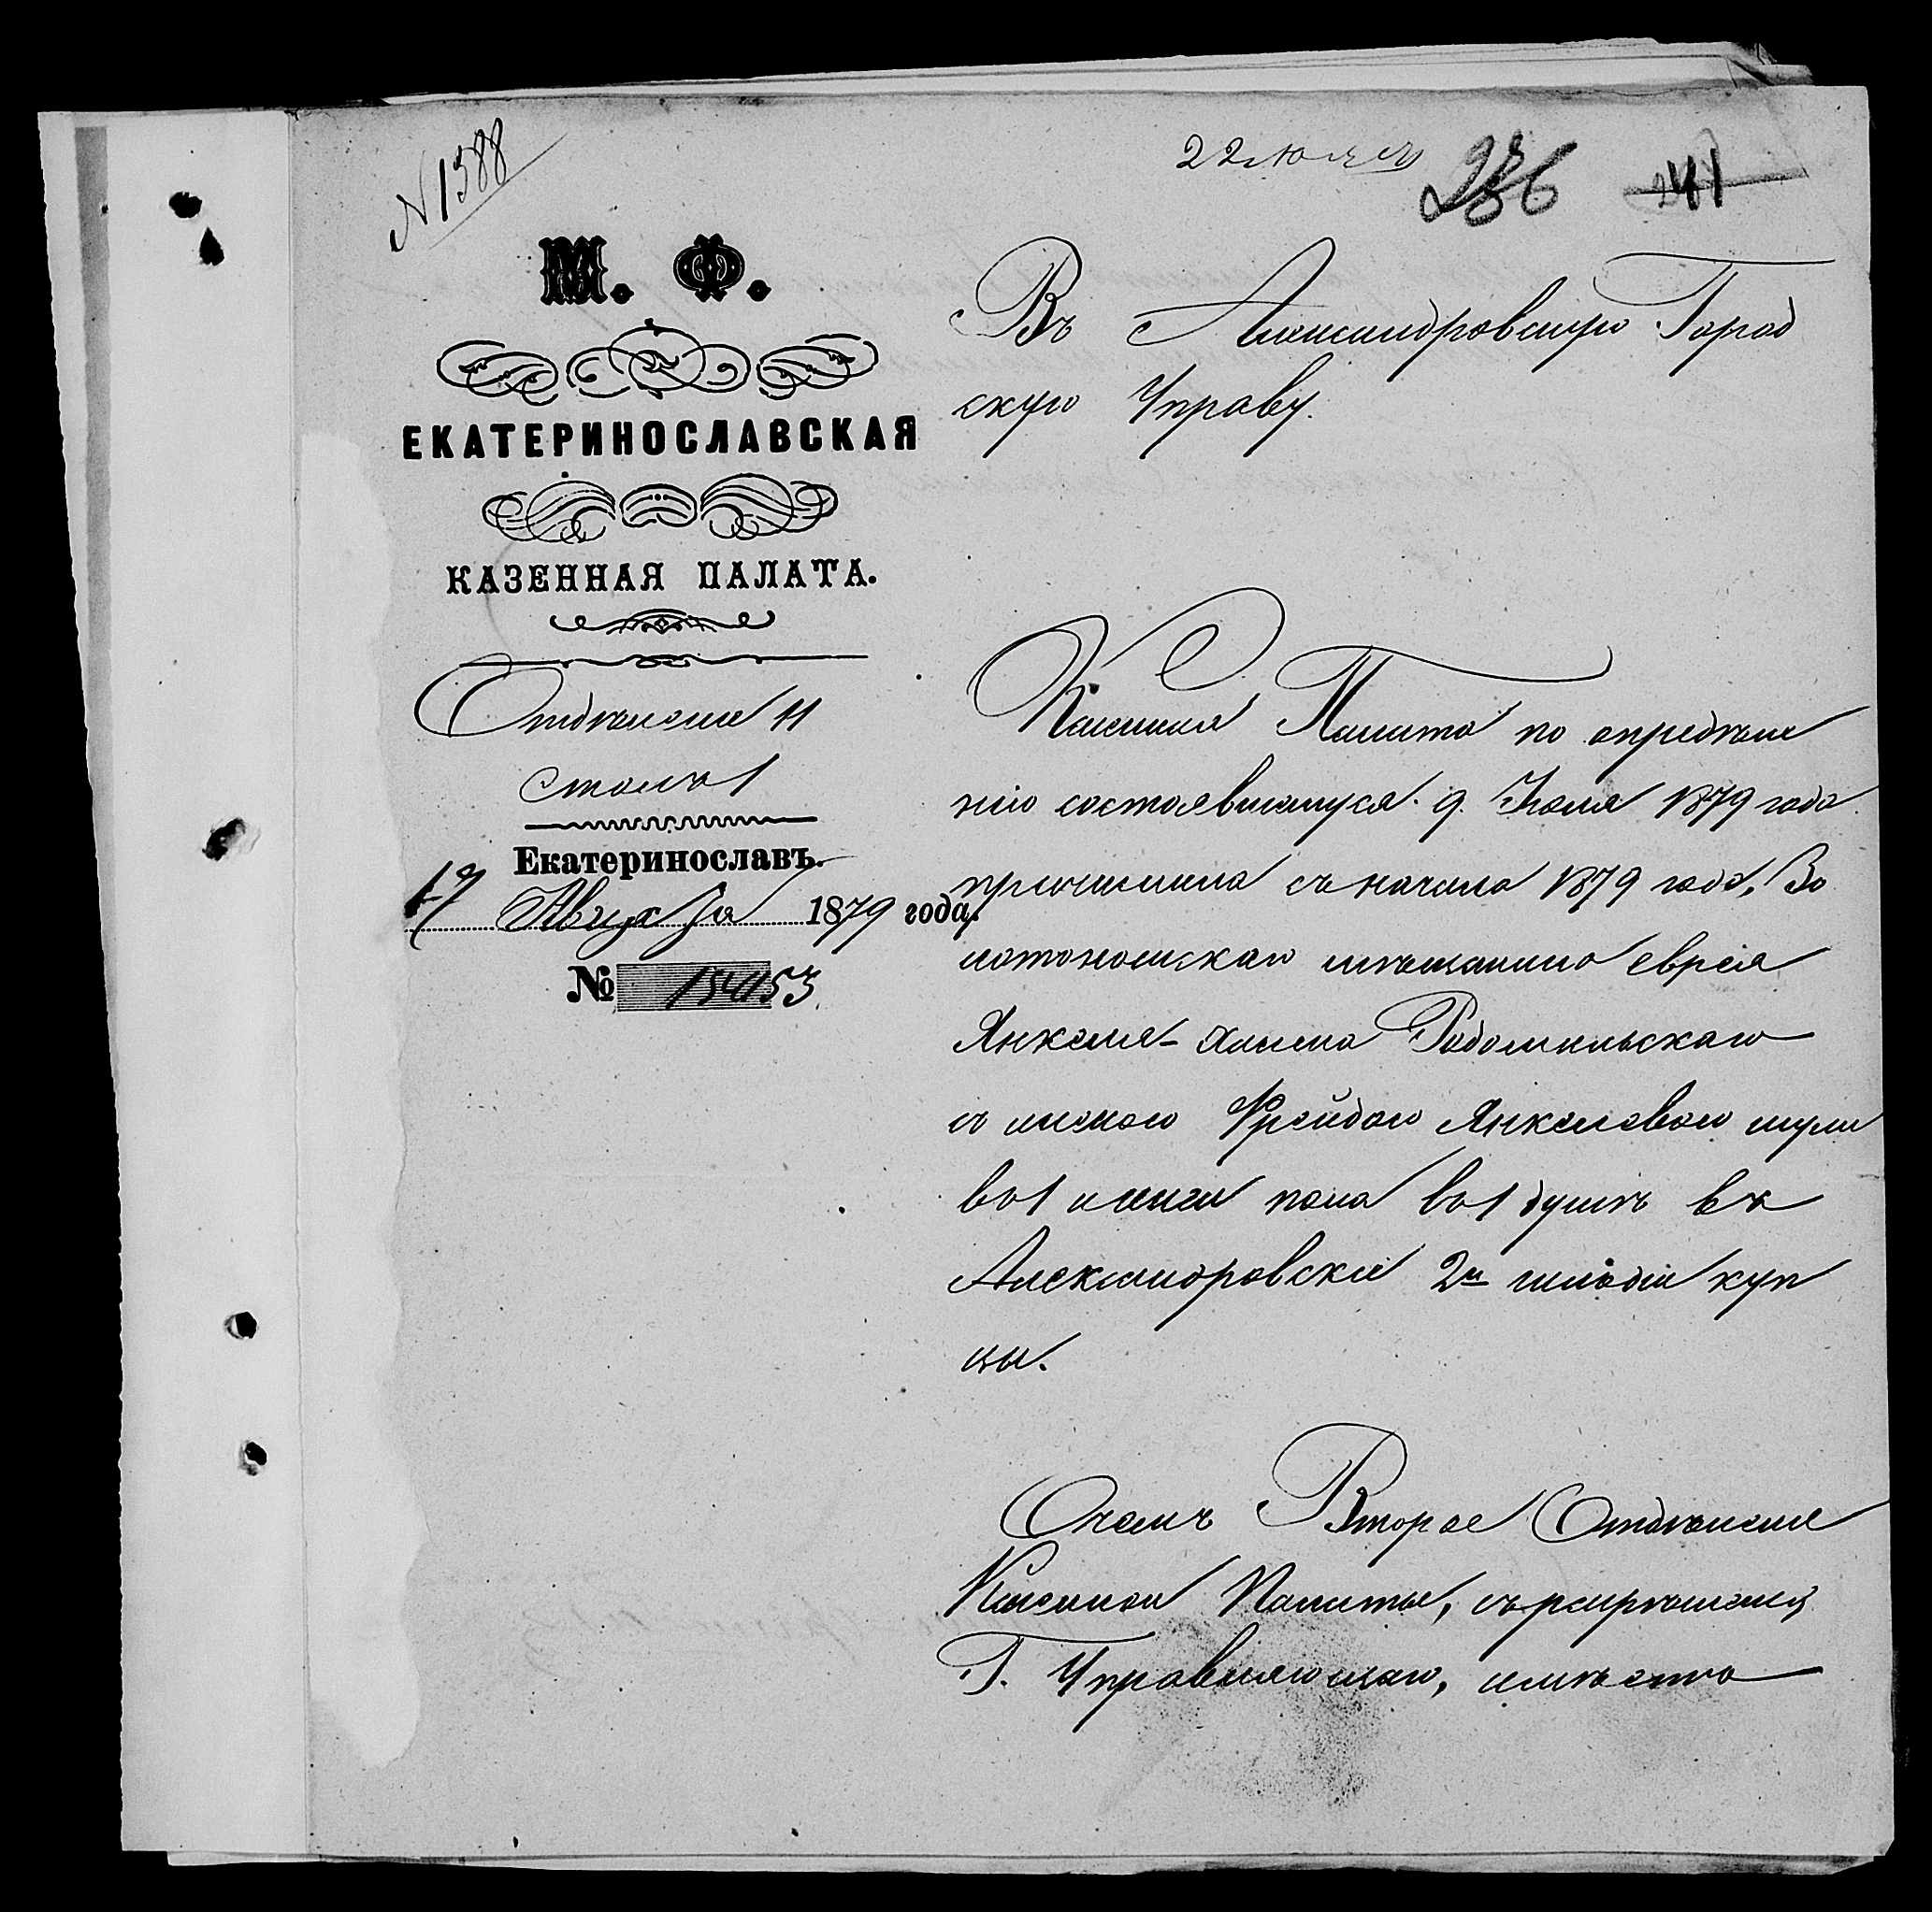 N 1388
236 241
М. Ф.
ЕКАТЕРИНОСЛАВСКАЯ
КАЗЕННАЯ ПАЛАТА.
Отдѣленіе II
столъ 1
Екатеринославъ.
17 Августа 1879 года.
№ 15453
Въ Александровскую Город
скую Управу.
Казенная Палата по опредѣле
нію состоявшемуся 9 Іюля 1879 года
причислила съ начала 1879 года, Зо
лотоношскаго мѣщанина еврея
Янкеля-Хаима Радомысльскаго
съ женою Фрейдою Янкелевою муж
во 1 и жен пола во 1 душѣ въ
Александровскіе 2й гильдіи куп
цы.
О чемъ Второе Отдѣленіе
Казенной Палаты, съ разрѣшенія
Г. Управляющаго, имѣетъ